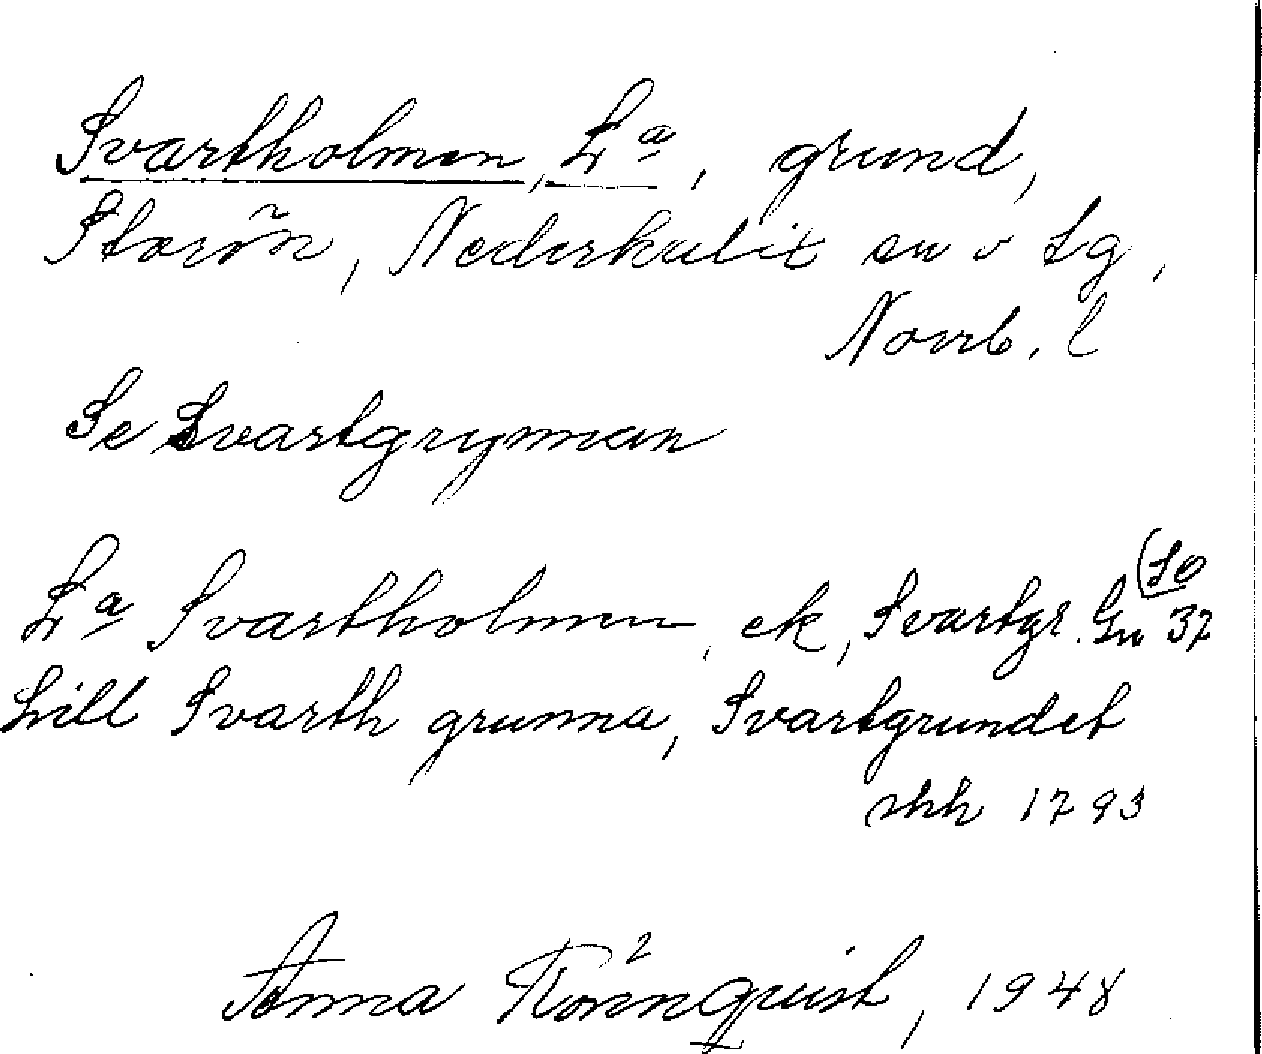 Svartholmen, L:a, grund,
Storön, Nederkalix sn o tg,
Norrb. l
Se Svartgrynnan
(10
L:a Svartholmen, ek, Svartgr. Gn 37
Lill Svarth grunna, Svartgrundet
shh 1793
Anna Törnquist, 1948